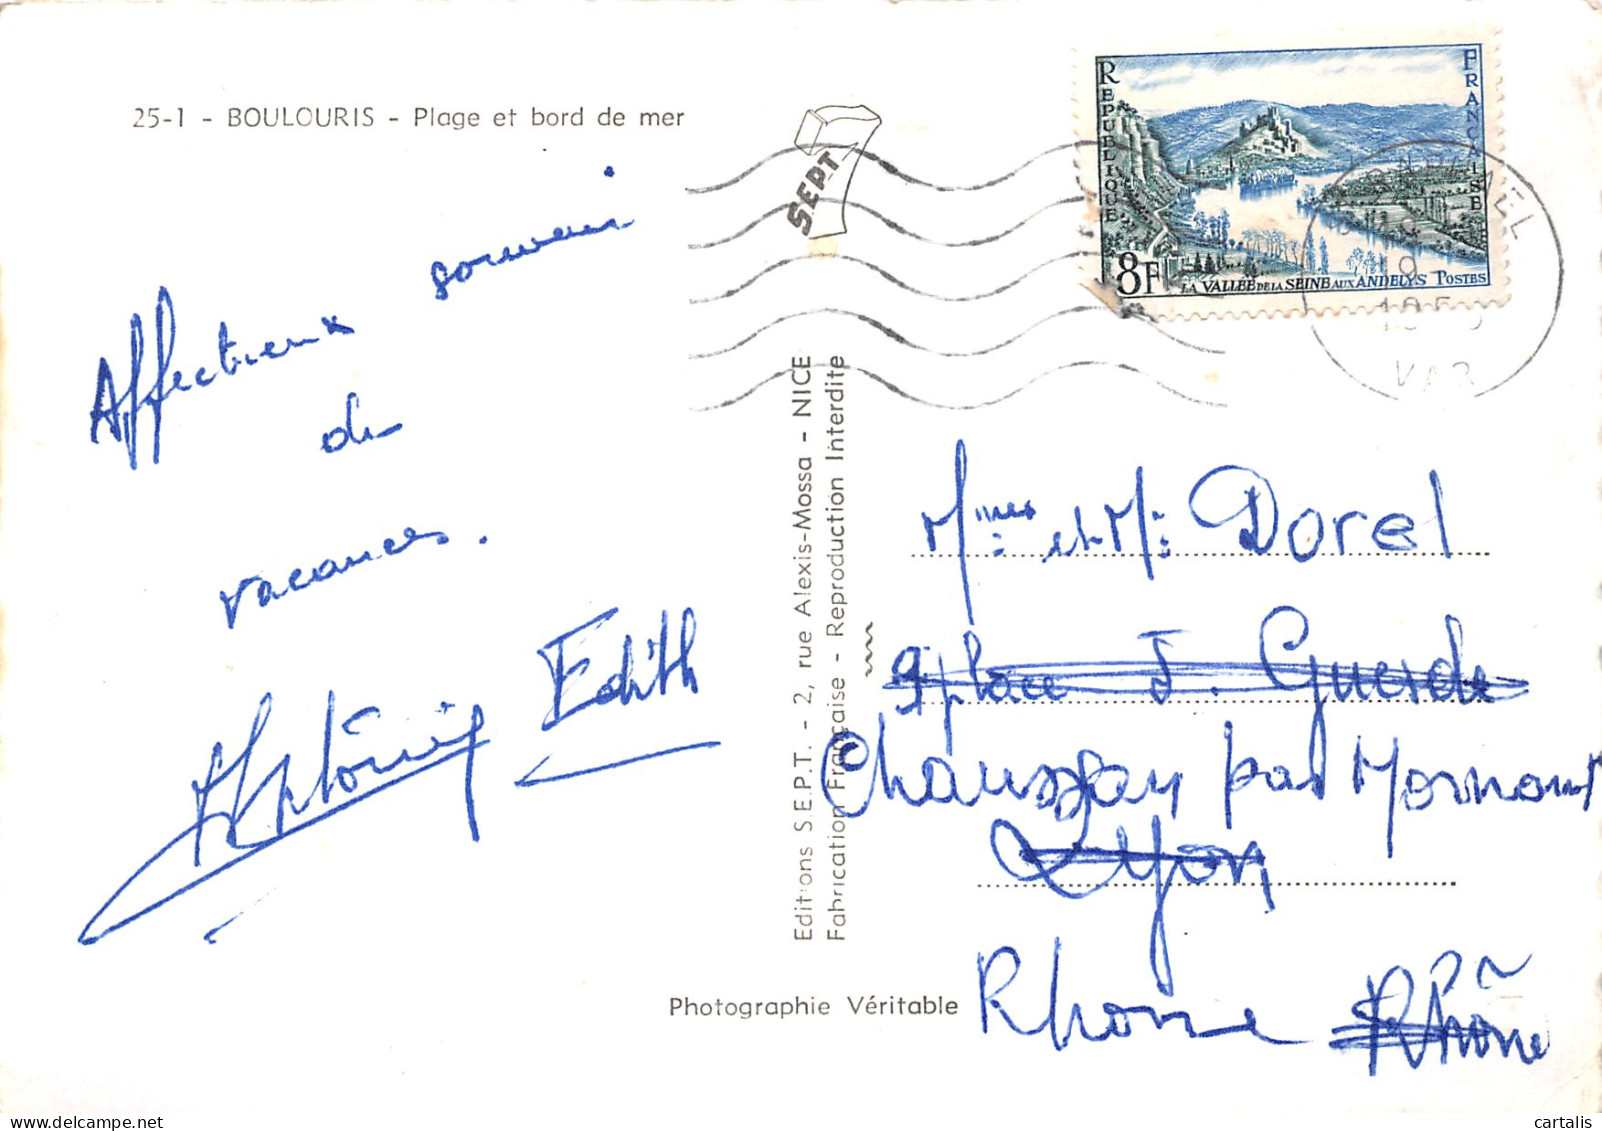 25-1 - BOULOURIS - Plage et bord de mer
SEPT
REPUBLIQUE
FRANCAISE
8F
LA VALLÉE DE LA SEINE AUX ANDELYS POSTES
VAR
Affectueux souvenir
de
vacances.
Edith
Editions S.E.P.T. - 2, rue Alexis-Mossa - NICE
Fabrication Française - Reproduction Interdite
Mmes et Mr Dorel
9 place J. Guesde
Chaussan par Mornant
Lyon
Rhone Rhône
Photographie Véritable
cartalis